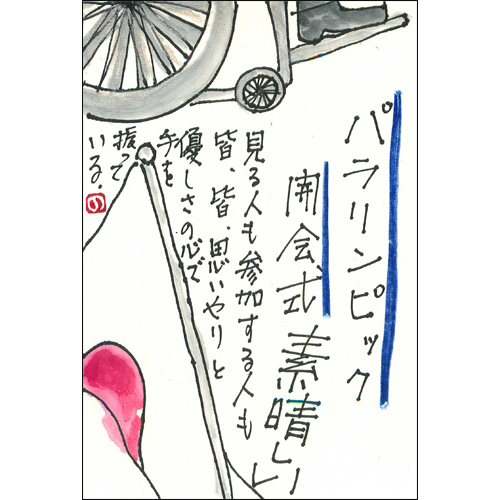 パラリンピック
開会式素晴しい
見る人も参加する人も
皆、皆、思いやりと
優しさの心で
手を
振って
いる。
の